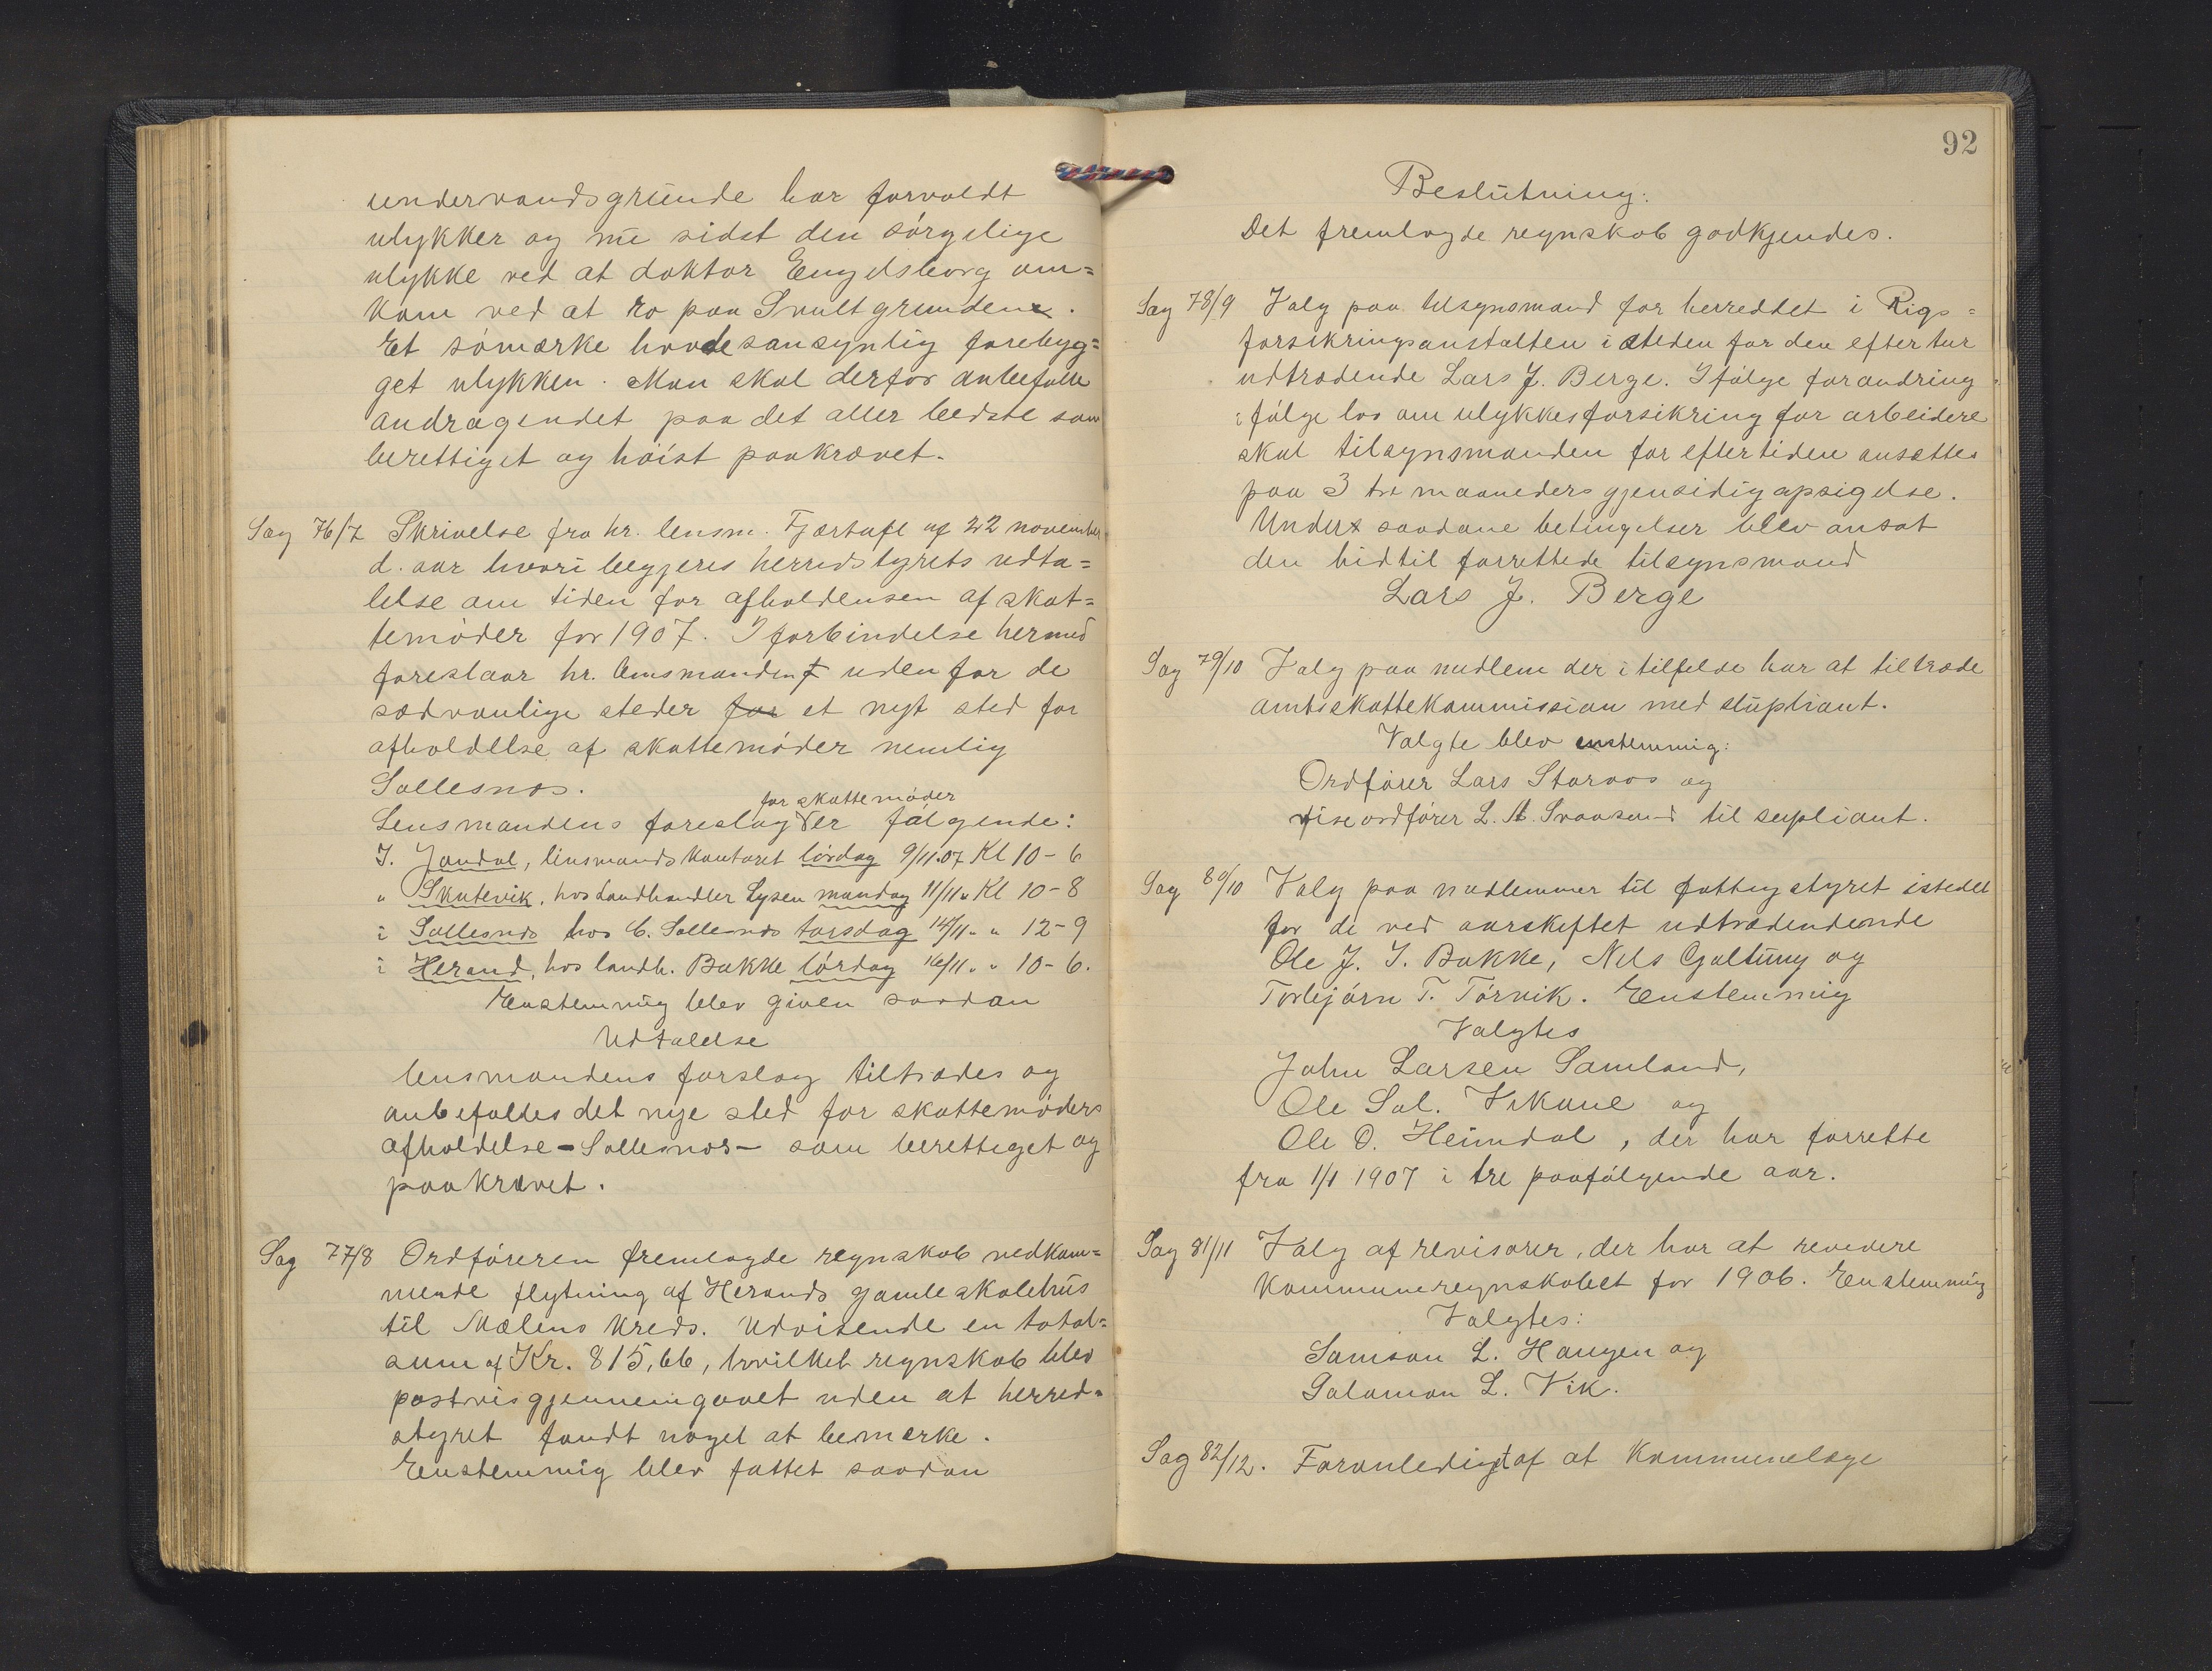 undervandsgrunde har forvoldt
ulykker og nu sidst den sørgelige
ulykke ved at doktor Engelsborg om=
kom ved at ro paa Svultgrunden.
Et sømærke havde sansynlig forebyg=
get ulykken. Man skal derfor anbefale
andragendet paa det aller bedste som
berettiget og høist paakrævet.
Sag 76/7 Skrivelse fra hr. lensm. Fjærtoft af 22 november
d. aar hvori begjæres herredstyrets udta=
lelse om tiden for afholdensen af skat=
temøder for 1907. I forbindelse hermed
foreslaar hr. lensmanden udenfor de
sædvanlige steder for et nyt sted for
afholdelse af skattemøder nemlig
Sollesnæs.
for skattemøder
Lensmandens foreslag er følgende:
I. Jondal, linsmandskontoret lørdag 9/11.07 Kl 10-6
" Skutevik, hos Landhandler Lysen mandag 11/11 " Kl 10-8
i Sollesnæs hos C. Sollesnæs torsdag 14/11 " " 12-9
i Herand, hos landh. Bakke lørdag 16/11 " " 10-6.
Enstemmig blev given saadan
Udtalelse
lensmandens forslag tiltrædes og
anbefaldes det nye sted for skattemøders
afholdelse - Sollesnæs - som berettiget og
paakrævet.
Sag 77/8 Ordføreren fremlagde regnskab vedkom=
mende flytning af Herands gamle skolehus
til Mælens kreds. Udvisende en total=
sum af Kr. 815,66, hvilket regnskab blev
postvis gjennemgaaet uden at herred=
styret fandt noget at bemerke.
Enstemmig blev fattet saadan
92
Beslutning:
Det fremlagde regnskab godkjendes.
Sag 78/9 Valg paa tilsynsmand for herreddet i Rigs=
forsikringsanstalten i steden for den efter tur
udtrædende Lars J. Berge. Ifølge forandring
ifølge lov om ulykkesforsikring for arbeidere
skal tilsynsmanden for eftertiden ansættes
paa 3 tre maaneders gjensidig opsigelse.
Under saadane betingelser blev ansat
den hidtil forrettede tilsynsmand
Lars J. Berge
Sag 79/10 Valg paa medlem der i tilfelde har at tiltræde
amtsskattekommission med supliant.
Valgte blev enstemmig:
Ordfører Lars Staraas og
viseordfører L. A. Svaasand til supliant.
Sag 80/10 Valg paa medlemmer til fattigstyret istedet
for de ved aarskeftet udtrædendende
Ole J. I. Bakke, Nils Galtung og
Torbjørn T. Tørvik. Enstemmig
Valgtes
John Larsen Samland,
Ole Sal. Vikane og
Ole O. Heimdal, der har forrette
fra 1/1 1907 i tre paafølgende aar.
Sag 81/11 Valg af revisorer, der har at revidere
kommuneregnskabet for 1906. Enstemmig
Valgtes:
Samson L. Haugen og
Salamon L. Vik.
Sag 82/12. Foranledigt af at Kommunelæge